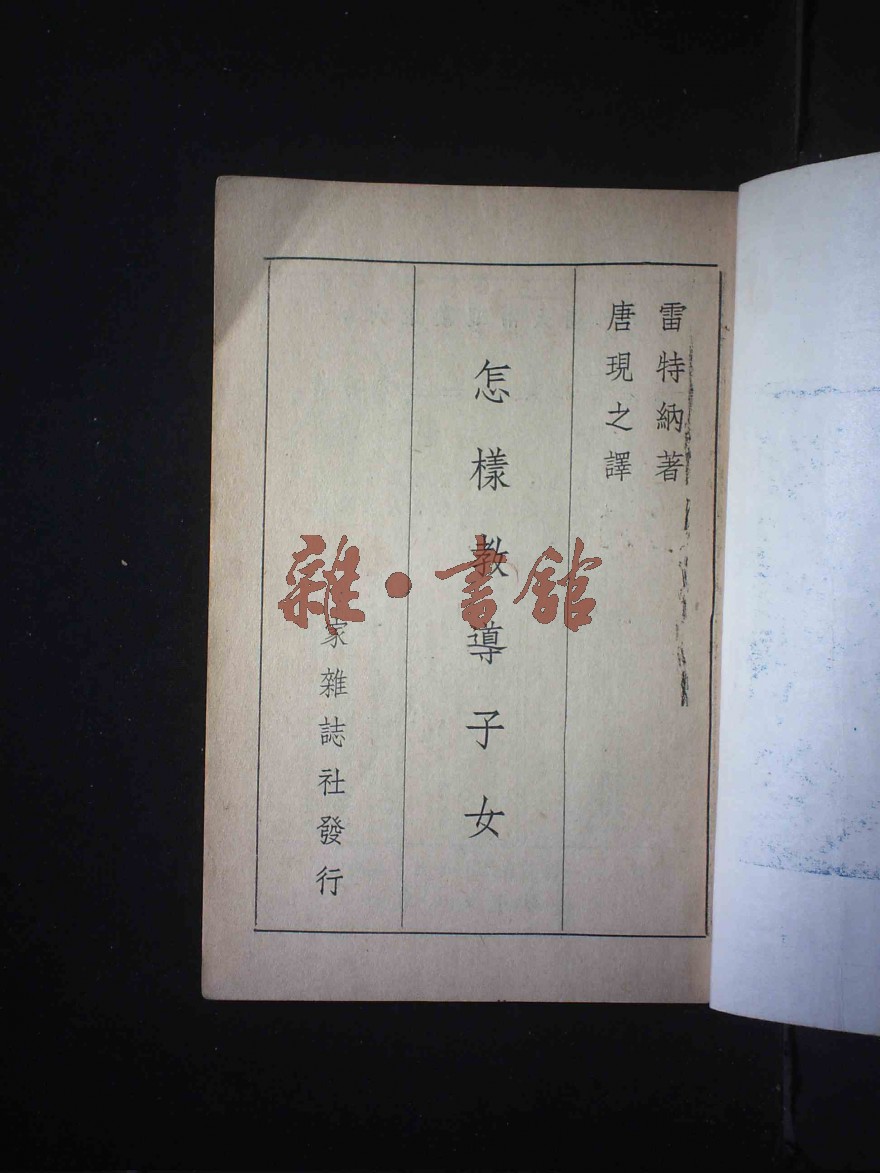 雷特納著
唐現之譯
怎樣教導子女
家雜誌社發行
雜·書館